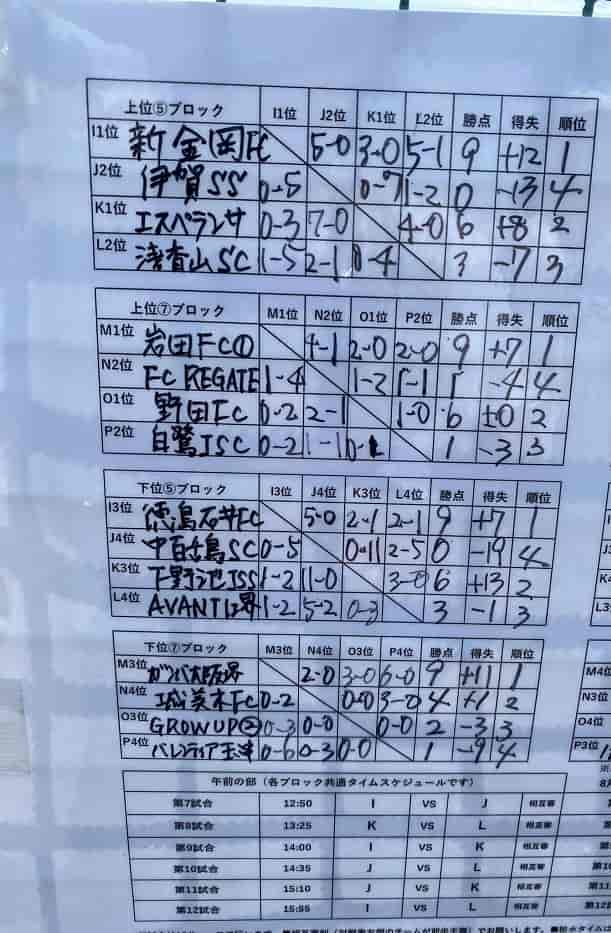 上位⑤ブロック I1位 J2位 K1位 L2位 勝点 得失 順位
I1位 新金岡FC 5-0 3-0 5-1 9 +12 1
J2位 伊賀SS 0-5 0-7 1-2 0 -13 4
K1位 エスペランサ 0-3 7-0 4-0 6 +8 2
L2位 浅香山SC 1-5 2-1 0-4 3 -7 3
上位⑦ブロック M1位 N2位 O1位 P2位 勝点 得失 順位
M1位 岩田FC① 4-1 2-0 2-0 9 +7 1
N2位 FC REGATE 1-4 1-2 1-1 1 -4 4
O1位 野田FC 0-2 2-1 1-0 6 ±0 2
P2位 白鷺JSC 0-2 1-1 0-1 1 -3 3
下位⑤ブロック I3位 J4位 K3位 L4位 勝点 得失 順位
I3位 徳島石井FC 5-0 2-1 2-1 9 +7 1
J4位 中百舌鳥SC 0-5 0-11 2-5 0 -19 4
K3位 下野池JSS 1-2 11-0 3-0 6 +13 2
L4位 AVANTI堺 1-2 5-2 0-3 3 -1 3
下位⑦ブロック M3位 N4位 O3位 P4位 勝点 得失 順位
M3位 ガンバ大阪堺 2-0 3-0 6-0 9 +11 1
N4位 城美木FC 0-2 0-0 3-0 4 +1 2
O3位 GROWUP② 0-3 0-0 0-0 2 -3 3
P4位 バレンティア玉津 0-6 0-3 0-0 1 -9 4
午前の部（各ブロック共通タイムスケジュールです）
第7試合 12:50 I VS J 相互審
第8試合 13:25 K VS L 相互審
第9試合 14:00 I VS K 相互審
第10試合 14:35 J VS L 相互審
第11試合 15:10 J VS K 相互審
第12試合 15:55 I VS L 相互審